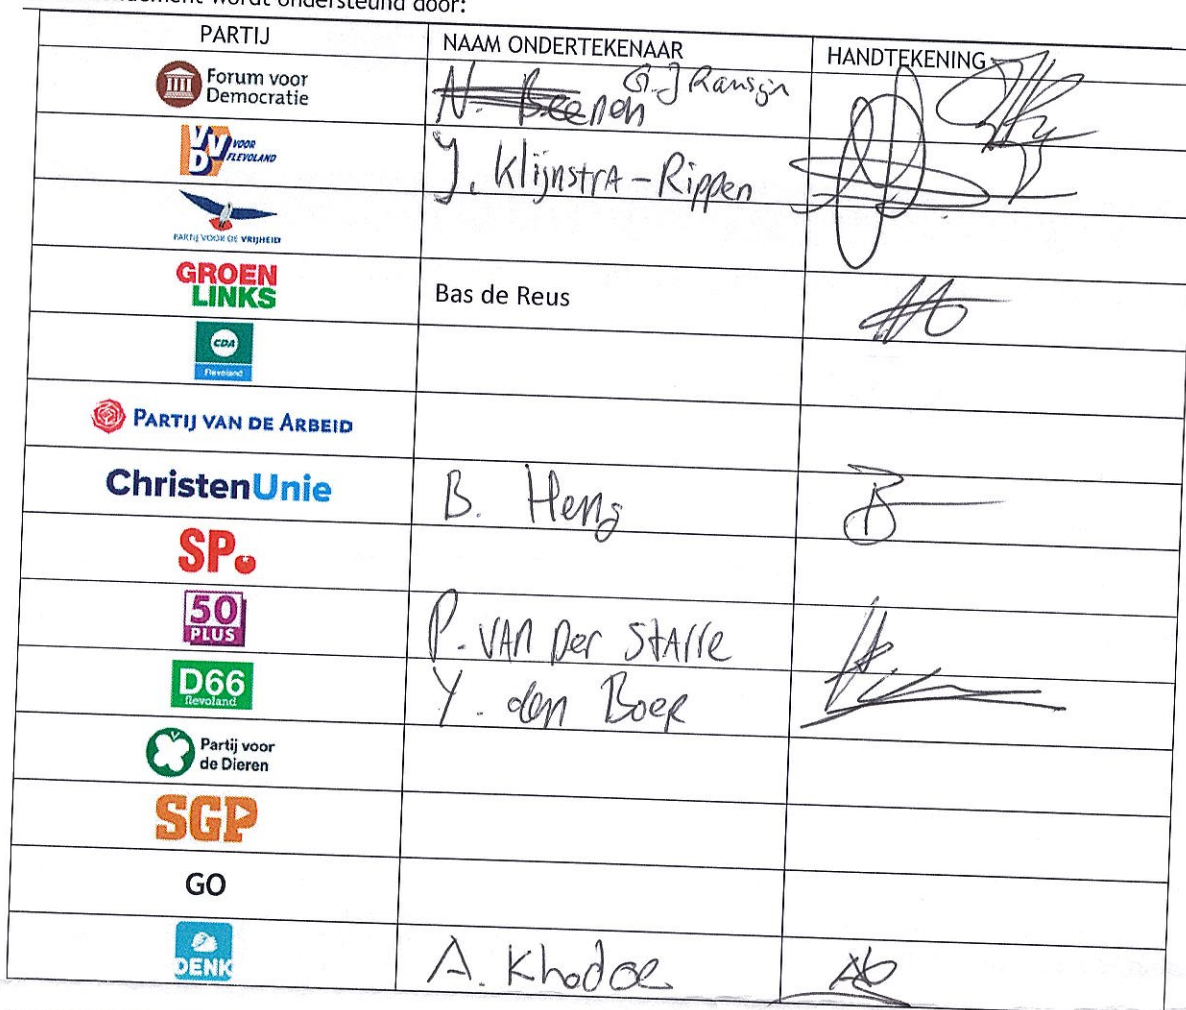 wordt ondersteund door:
PARTIJ NAAM ONDERTEKENAAR HANDTEKENING
Forum voor Democratie N. Beenen G.J Ransijn
VVD VOOR FLEVOLAND Y. Klijnstra-Rippen
PARTIJ VOOR DE VRIJHEID
GROEN LINKS Bas de Reus
CDA Flevoland
PARTIJ VAN DE ARBEID
ChristenUnie B. Heng
SP.
50 PLUS P. VAN Der StAlle
D66 flevoland Y. den Boer
Partij voor de Dieren
SGP
GO
DENK A. Khodoe